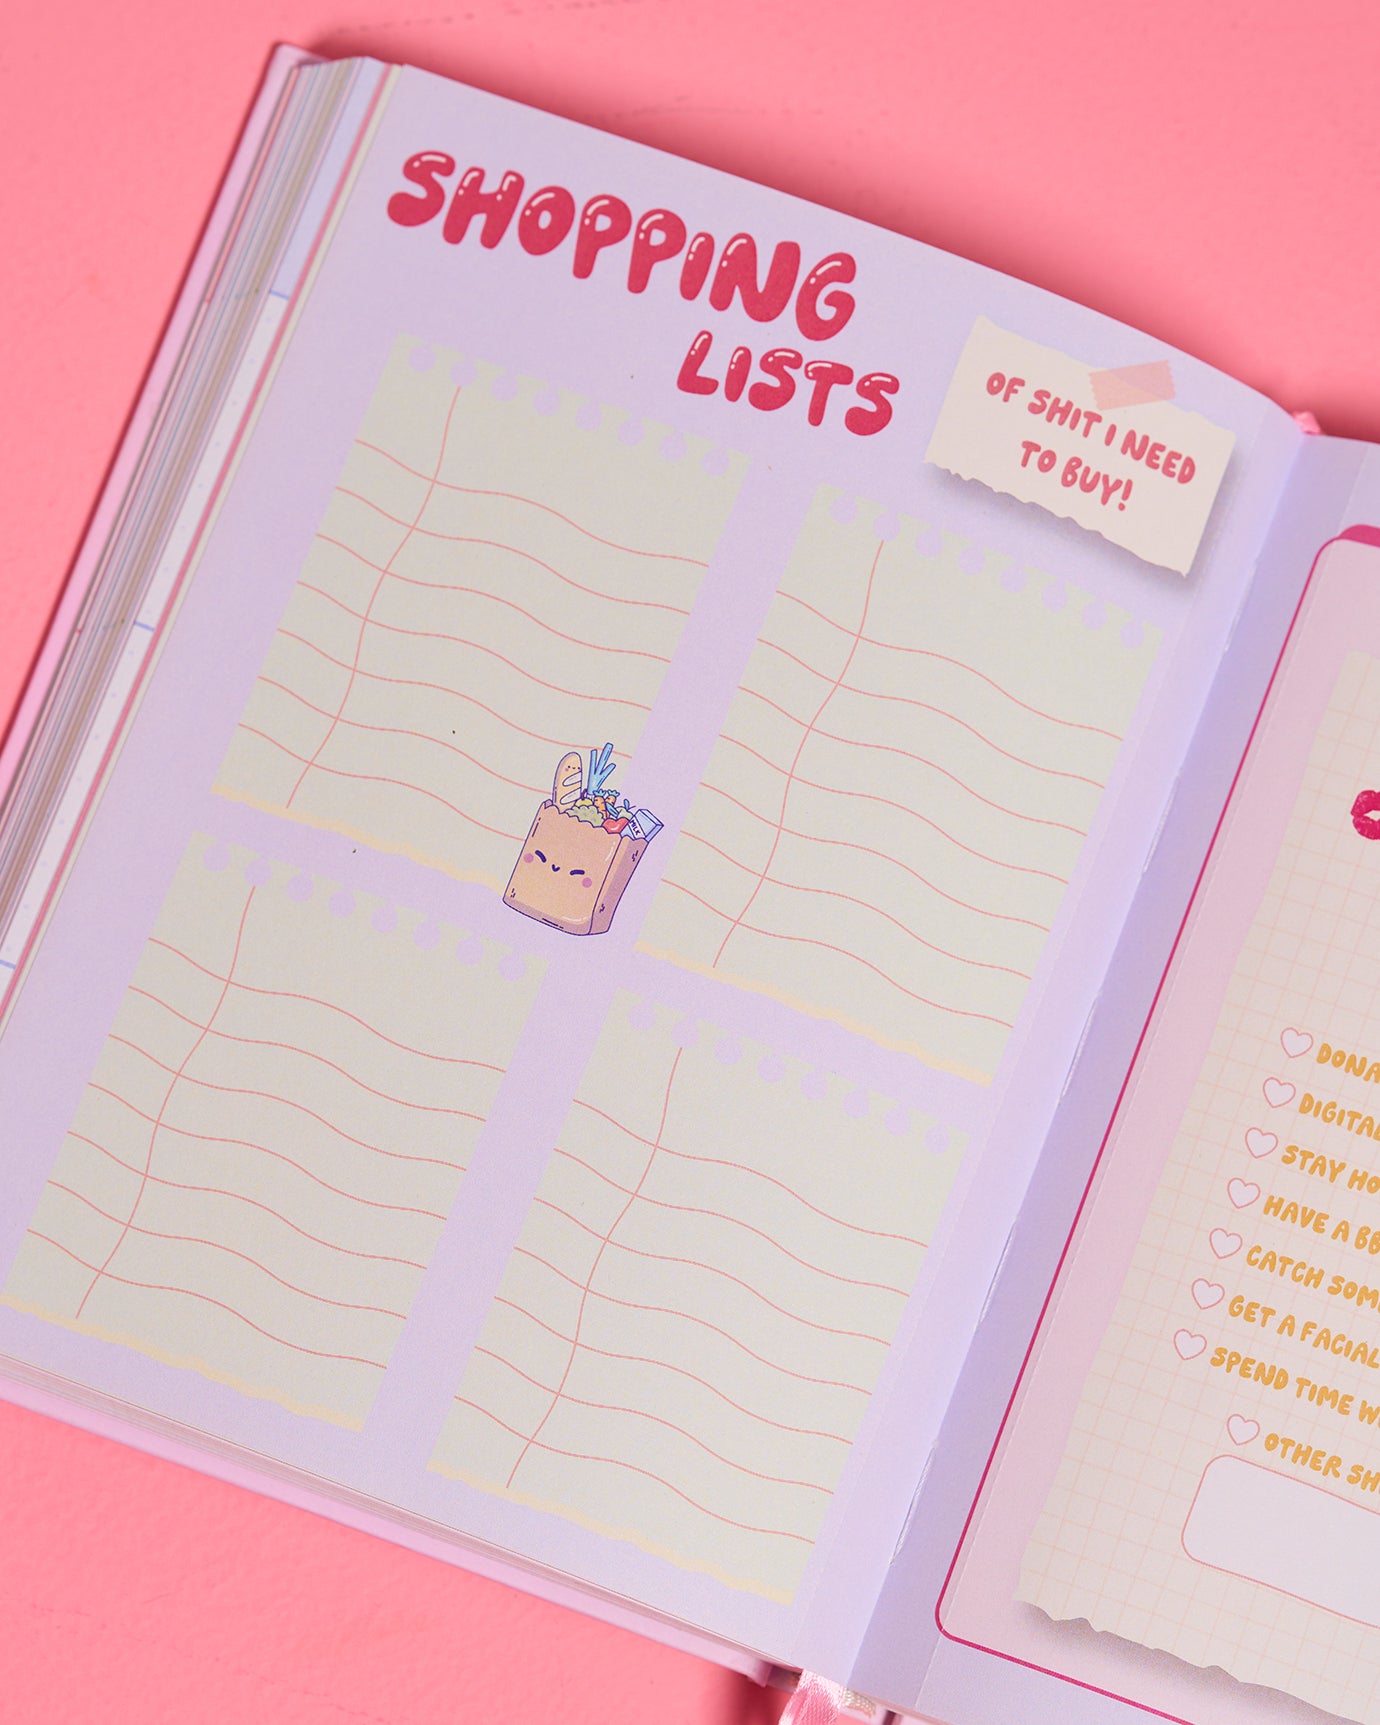 SHOPPING
LISTS
OF SHIT I NEED
TO BUY!
MILK
DIGITAL
STAY
HAVE A
CATCH
GET A FACIAL
SPEND TIME
OTHER